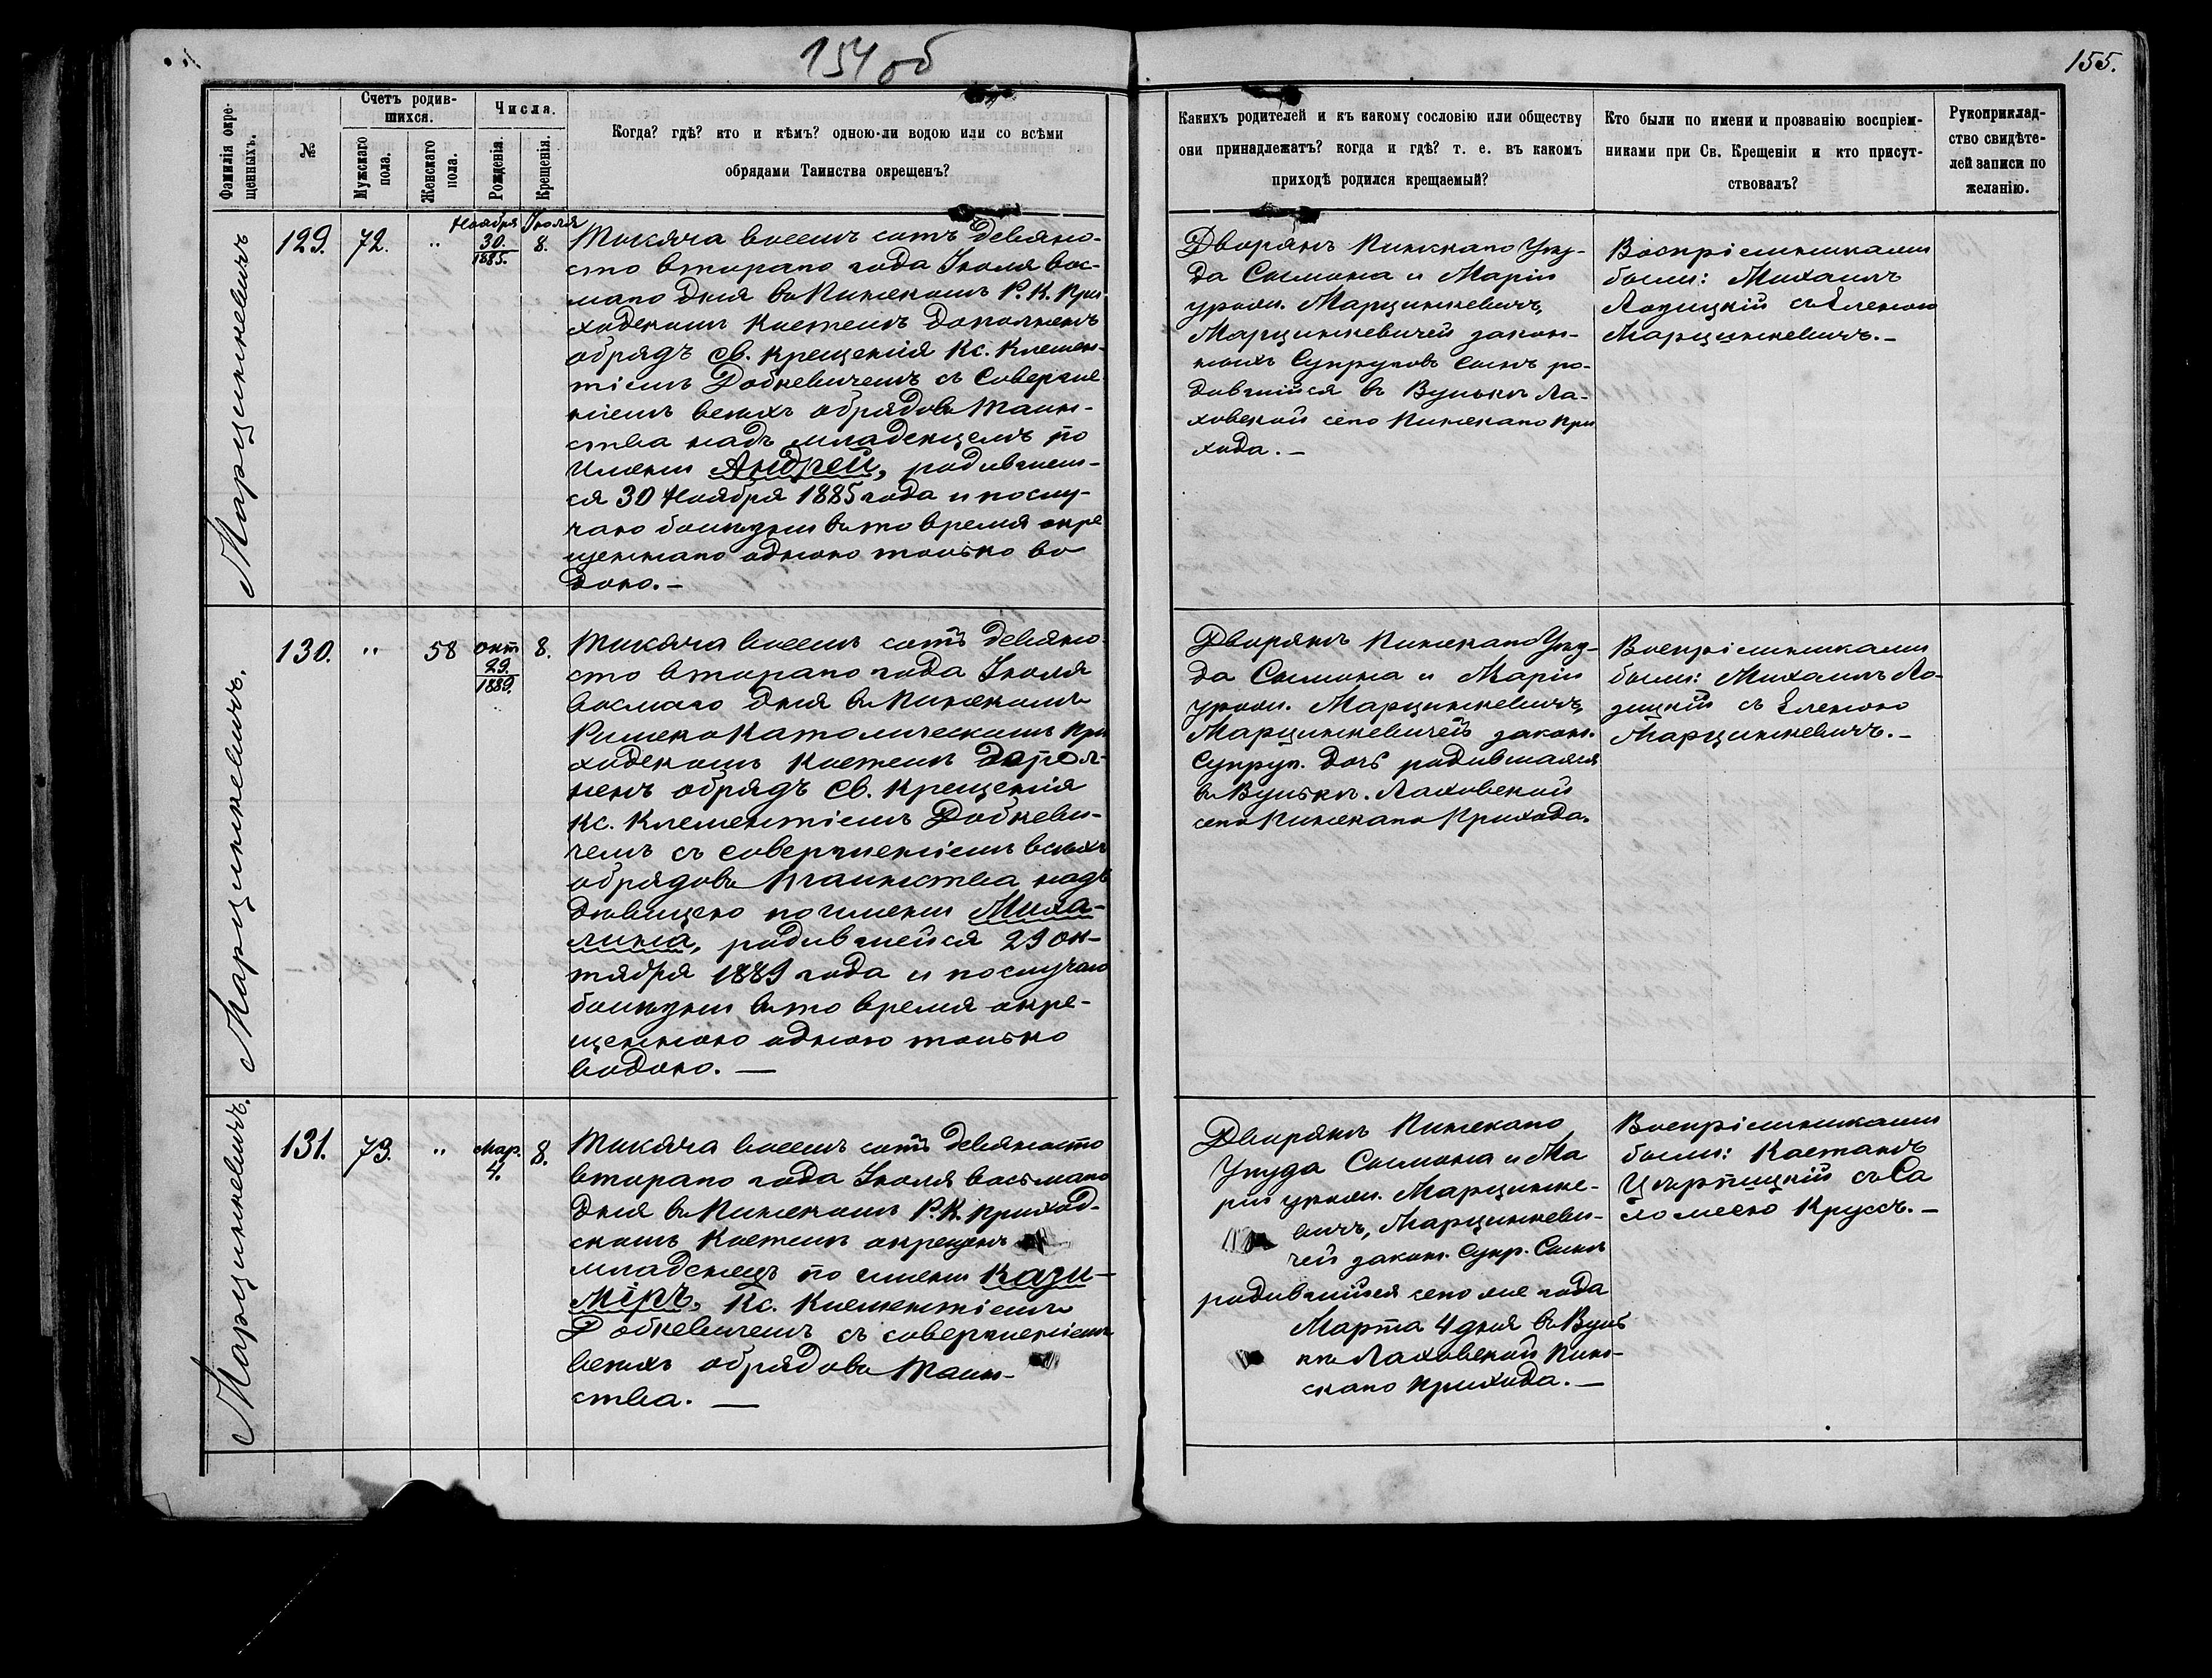 154 об
155.
Фамилія окре-
щенныхъ.
№
Счетъ родив-
шихся.
Мужскаго
пола.
Женскаго
пола.
Числа.
Рожденія.
Крещенія.
Когда? гдѣ? кто и кѣмъ? одною-ли водою или со всѣми
обрядами Таинства окрещенъ?
Какихъ родителей и къ какому сословію или обществу
они принадлежатъ? когда и гдѣ? т. е. въ какомъ
приходѣ родился крещаемый?
Кто были по имени и прозванію воспріем-
никами при Св. Крещеніи и кто присут-
ствовалъ?
Рукоприклад-
ство свидѣте-
лей записи по
желанію.
Марцинкевичъ
129.
72.
"
Ноября
30.
1885.
Іюля
8.
Тысяча восемъ сотъ девяно-
сто втораго года Іюля вос-
маго дня въ Пинскомъ Р. К. При-
ходскомъ Костелѣ дополненъ
обрядъ св. крещенія Кс. Клемен-
тіемъ Добкевичемъ съ соверше-
ніемъ всѣхъ обрядовъ Таин-
ства надъ младенцемъ по
имени Андрей, родившем-
ся 30 Ноября 1885 года и по слу-
чаю болѣзни въ то время окре
щеннаго одною только во
дою. —
Дворянъ Пинскаго Уѣз-
да Сымона и Маріи
урожд. Марцинкевичъ,
Марцинкевичей закон-
ныхъ Супруговъ сынъ ро-
дившійся въ Вулькѣ Ла-
ховской сего Пинскаго При
хода. —
Воспріемниками
были: Михаилъ
Лозицкій съ Еленою
Марцинкевичъ. —
Марцинкевичъ.
130.
"
58
Окт
29.
1889.
8.
Тысяча восемъ сотъ девяно
сто втораго года Іюля
восмаго дня въ Пинскомъ
Римско Католическомъ При
ходскомъ Костелѣ допол-
ненъ обрядъ Св. Крещенія
Кс. Клементіемъ Добкеви-
чемъ съ совершеніемъ всѣхъ
обрядовъ Таинства надъ
дѣвицею по имени Миха-
лина, родившейся 29 ок-
тября 1889 года и по случаю
болѣзни въ то время окре-
щенною одною только
водою. —
Дворянъ Пинскаго Уѣз-
да Сымона и Маріи
урожд. Марцинкевичъ,
Марцинкевичей закон.
Супруг. дочь родившаяся
въ Вулькѣ. Лаховской
сего Пинскаго Прихода.
Воспріемниками
были: Михаилъ Ло-
зицкій съ Еленою
Марцинкевичъ. —
Марцинкевичъ.
131.
73.
"
Мар.
4.
8.
Тысяча восемъ сотъ девяносто
втораго года Іюля восьмаго
дня въ Пинскомъ Р. К. приход-
скомъ Костелѣ окрещенъ
младенецъ по имени Кази-
міръ, Кс. Клементіемъ
Добкевичемъ съ совершеніемъ
всѣхъ обрядовъ Таин-
ства. —
Дворянъ Пинскаго
Уѣзда Сымона и Ма
ріи урожд. Марцинке-
вичъ, Марцинкеви-
чей закон. Супр. Сынъ
родившійся сего же года
Марта 4 дня въ Вуль
кѣ Лаховской Пин-
скаго Прихода. —
Воспріемниками
были: Каетанъ
съ Са
ломеею Круссъ. —